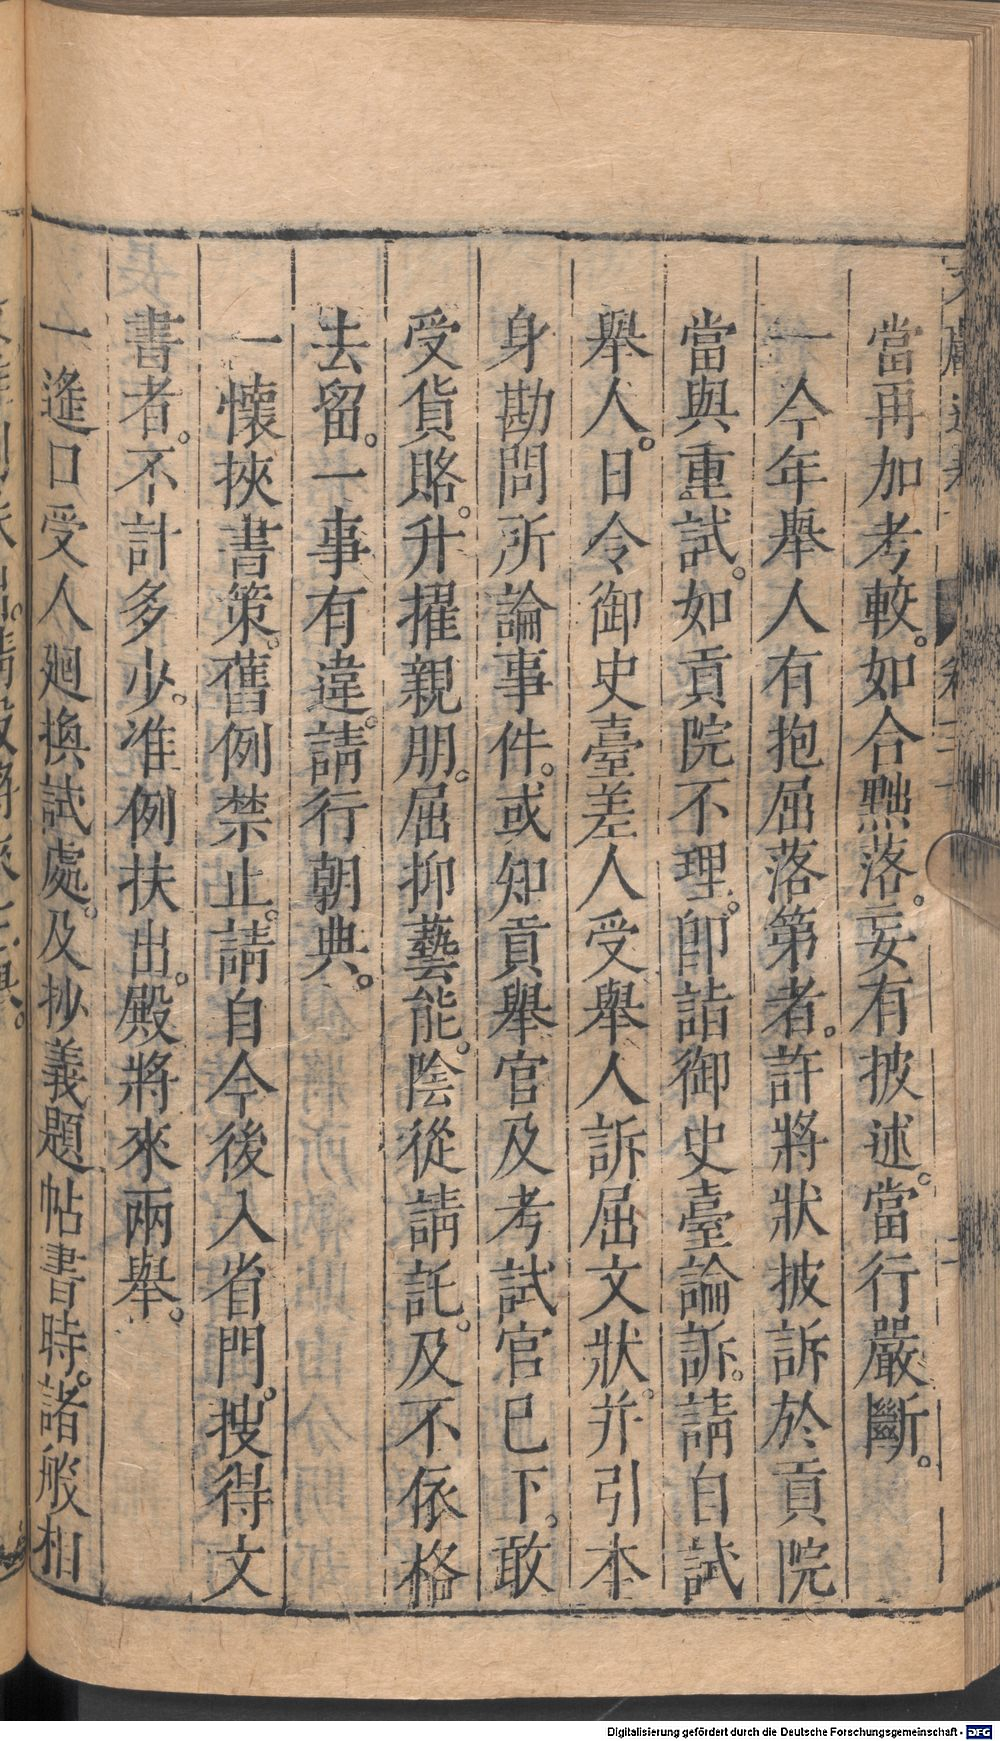 當再加考較。如合黜落。妄有披述。當行嚴斷。
一今年舉人有抱屈落第者。許將狀披訴於貢院
當與重試。如貢院不理。卽詣御史臺論訴。請自試
舉人。日令御史臺差人受舉人訴屈文狀。并引本
身勘問所論事件。或知貢舉官及考試官已下。敢
受貨賂。升擢親朋。屈抑藝能。陰從請託。及不依格
去留。一事有違。請行朝典。
一懷挾書策。舊例禁止。請自今後入省門。搜得文
書者。不計多少。准例扶出。殿將來兩舉。
一遙口受人廻換試處。及抄義題帖書時。諸般相
Digitalisierung gefördert durch die Deutsche Forschungsgemeinschaft - DFG